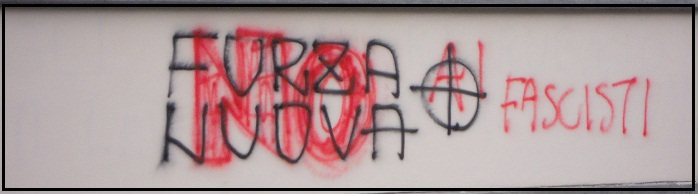 FORZA
NUOVA
NO AI FASCISTI